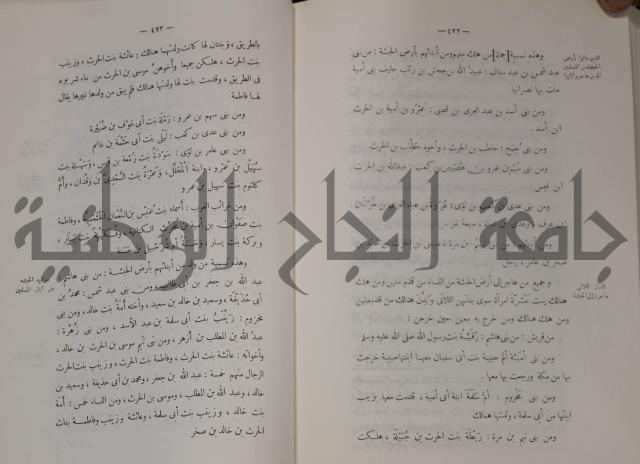 — ٤٢٢ —
وهذه تسمية [جملة] من هلك منهم ومن أبنائهم بأرض الحبشة : من بنى
عبد شمس بن عبد مناف : عبيد الله بن جحش بن رئاب حليف بنى أمية
مات بها نصرانيا .
ومن بنى أسد بن عبد العزى بن قصى : عمرو بن أمية بن الحرث
ابن أسد .
ومن بنى جمح : حاطب بن الحرث ، وأخوه حطاب بن الحرث
ومن بنى سهم بن عمرو بن هصيص بن كعب : عبد الله بن الحرث
ابن قيس .
ومن بنى عدى بن كعب بن لؤى : عروة بن عبد العزى بن حرثان
ابن عوف
صخر بن عامر ، رجل
و جميع من هاجر إلى أرض الحبشة من النساء من قدم منهن ومن هلك
هنالك ست عشرة امرأة سوى بناتهن اللائى ولدن هنالك من قدم منهن
ومن هلك هنالك ومن خرج به معهن حين خرجن :
من قريش : من بنى هاشم : رقية بنت رسول الله صلى الله عليه وسلم
ومن بنى أمية : أم حبيبة بنت أبى سفيان معها ابنتها حبيبة خرجت
بها من مكة ورجعت بها معها .
ومن بنى مخزوم : أم سلمة ابنة أبى أمية ، قدمت معها بزينب
ابنتها من أبى سلمة ، ولدتها هنالك
ومن بنى تيم بن مرة : ريطة بنت الحرث بن جبيلة ، هلكت
— ٤٢٣ —
بالطريق ، وبنتان لها كانت ولدتهما هنالك : عائشة بنت الحرث ، وزينب
بنت الحرث ، هلكن جميعا وأخوهن موسى بن الحرث من ماء شربوه
فى الطريق ، وقدمت بنت لها ولدتها هنالك فلم يبق من ولدها غيرها يقال
لها فاطمة
ومن بنى سهم بن عمرو : رملة بنت أبى عوف بن ضبيرة
ومن بنى عدى بن كعب : ليلى بنت أبى حثمة بن غانم
ومن بنى عامر بن لؤى : سودة بنت زمعة بن قيس ، وسهلة بنت
سهيل بن عمرو ، وابنة المجلل ، وعمرة بنت السعدى بن وقدان ، وأم
كلثوم بنت سهيل بن عمرو
ومن غرائب العرب : أسماء بنت عميس بن النعمان الخثعمية ، وفاطمة
بنت صفوان بن أمية بن محرث الكنانية ، وفكيهة بنت يسار ،
و بركة بنت يسار ، وحسنة أم شرحبيل بن حسنة
وهذه تسمية من ولد من أبنائهم بأرض الحبشة : من بنى هاشم :
عبد الله بن جعفر بن أبى طالب ومن بنى عبد شمس : محمد بن
أبى حذيفة ، وسعيد بن خالد بن سعيد ، وأخته أمة بنت خالد ، ومن بنى
مخزوم : زينب بنت أبى سلمة بن عبد الأسد ، ومن بنى زهرة :
عبد الله بن المطلب بن أزهر ، ومن بنى تيم موسى بن الحرث بن خالد ،
وأخواته : عائشة بنت الحرث ، وفاطمة بنت الحرث ، وزينب بنت الحرث
الرجال منهم خمسة : عبد الله بن جعفر ، ومحمد بن أبى حذيفة ، وسعيد بن
خالد ، وعبد الله بن المطلب ، وموسى بن الحرث ، ومن النساء خمس : أمة
بنت خالد ، وزينب بنت أبى سلمة ، وعائشة وزينب وفاطمة بنات
الحرث بن خالد بن صخر
جامعة النجاح الوطنية